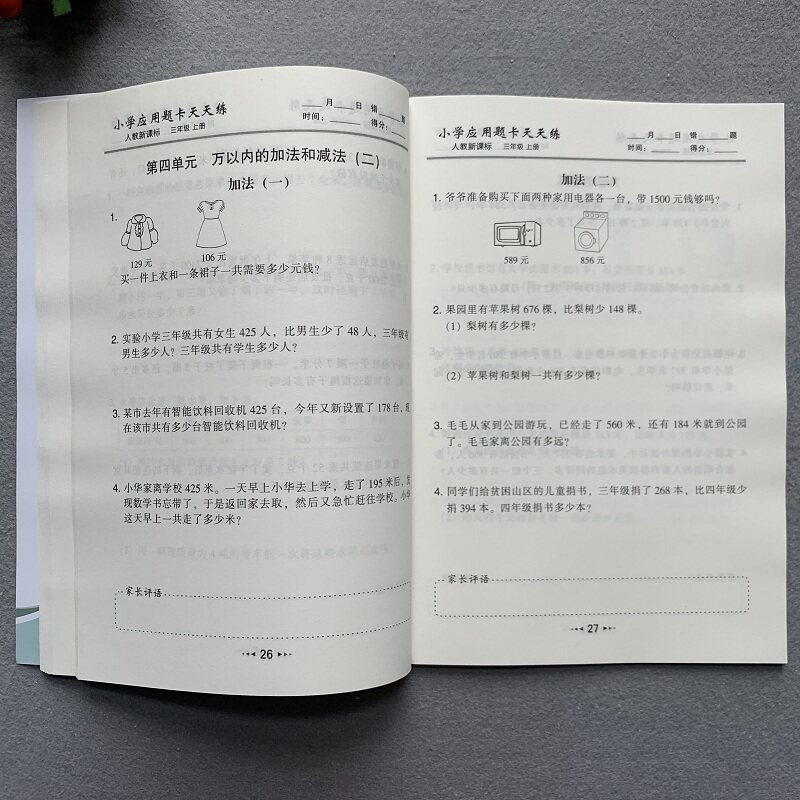 小学应用题卡天天练
人教新课标 三年级 上册
___月___日 错___题
时间：____ 得分：____
第四单元 万以内的加法和减法（二）
加法（一）
1.
129 元 106 元
买一件上衣和一条裙子一共需要多少元钱？
2. 实验小学三年级共有女生 425 人，比男生少了 48 人，三年级有
男生多少人？三年级共有学生多少人？
3. 某市去年有智能饮料回收机 425 台，今年又新设置了 178 台，
在该市共有多少台智能饮料回收机？
4. 小华家离学校 425 米。一天早上小华去上学，走了 195 米后，
现数学书忘带了，于是返回家去取，然后又急忙赶往学校。小华
这天早上一共走了多少米？
家长评语
26
小学应用题卡天天练
人教新课标 三年级 上册
___月___日 错___题
时间：____ 得分：____
加法（二）
1. 爷爷准备购买下面两种家用电器各一台，带 1500 元钱够吗？
589 元 856 元
2. 果园里有苹果树 676 棵，比梨树少 148 棵。
（1）梨树有多少棵？
（2）苹果树和梨树一共有多少棵？
3. 毛毛从家到公园游玩，已经走了 560 米，还有 184 米就到公园
了。毛毛家离公园有多远？
4. 同学们给贫困山区的儿童捐书，三年级捐了 268 本，比四年级少
捐 394 本。四年级捐书多少本？
家长评语
27